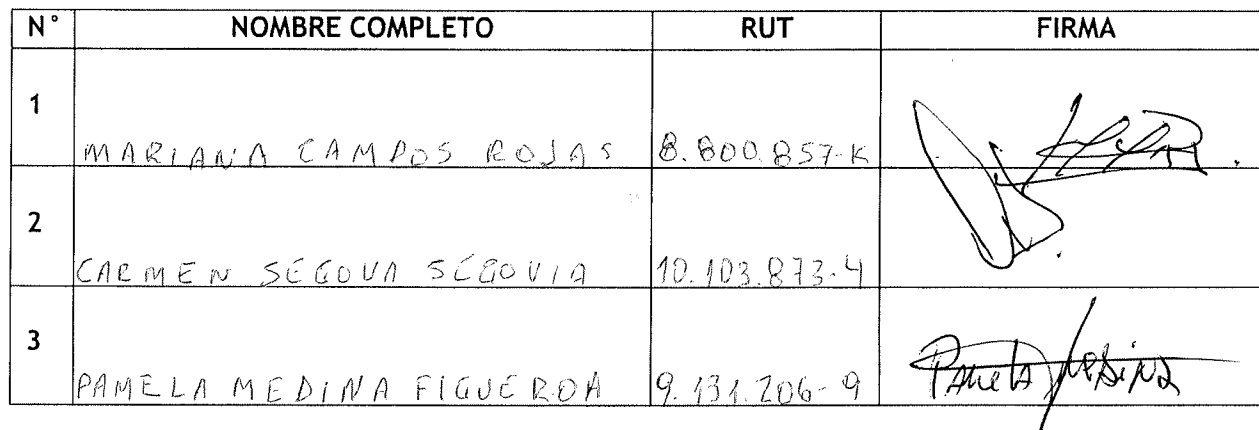 N° NOMBRE COMPLETO RUT FIRMA
1 MARIANA CAMPOS ROJAS 8.800.857-K
2 CARMEN SEGOVIA SEGOVIA 10.103.873-4
3 PAMELA MEDINA FIGUEROA 9.131.206-9 Pamela Medina